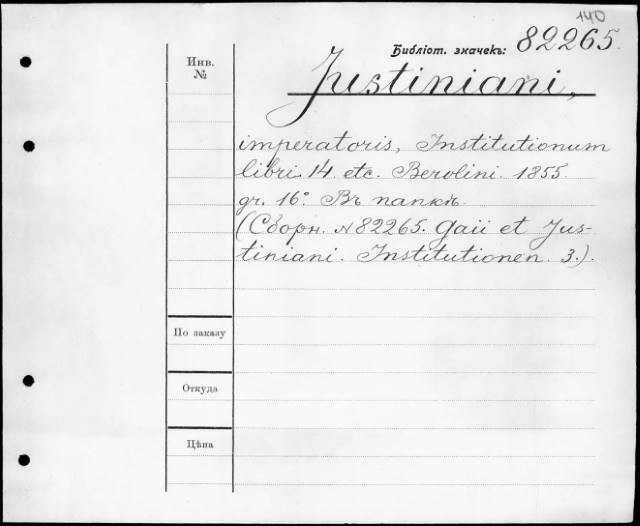 140
Библіот. значекъ: 82265.
Инв. №
Justiniani,
imperatoris, Institutionum
libri 14. etc. Berolini. 1855.
gr. 16°. Въ папкѣ.
(Сборн. № 82265. Gaii et Jus-
tiniani. Institutionen. 3.).
По заказу
Откуда
Цѣна